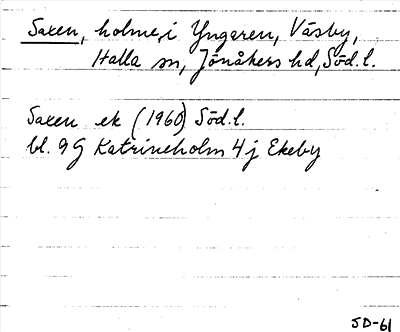 Saxen, holme, i Yngaren, Väsby,
Halla sn, Jönåkers hd, Söd.l.
Saxen ek (1960) Söd.l.
bl. 9G Katrineholm 4j Ekeby
SD-61